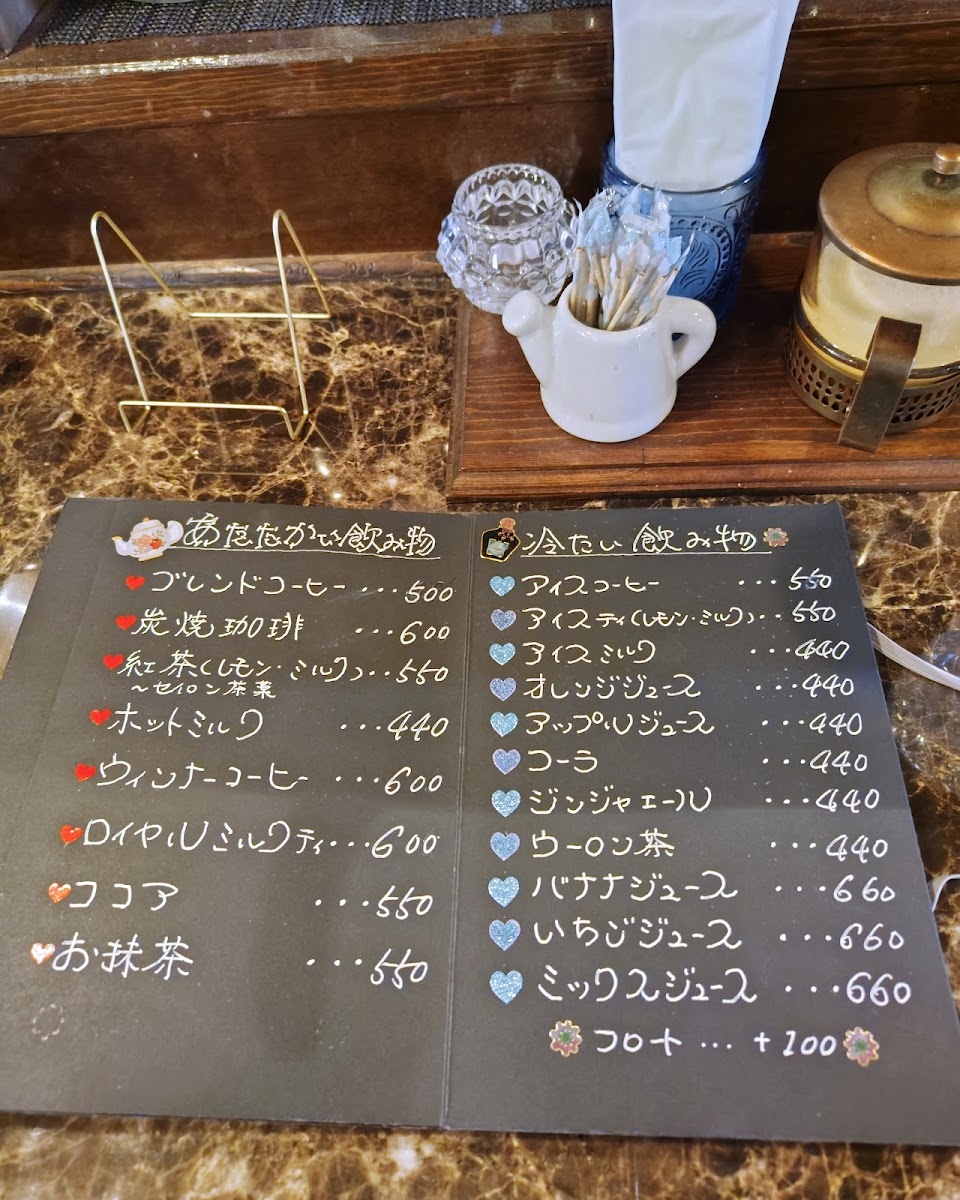 あたたかい飲み物
ブレンドコーヒー ... 500
炭焼珈琲 ...600
紅茶(レモン・ミルク)...550
～セイロン茶葉
ホットミルク ...440
ウィンナーコーヒー ...600
ロイヤルミルクティ...600
ココア ...550
お抹茶 ...550
冷たい飲み物
アイスコーヒー ...550
アイスティ(レモン・ミルク)..550
アイスミルク ...440
オレンジジュース ...440
アップルジュース ...440
コーラ ...440
ジンジャエール ...440
ウーロン茶 ...440
バナナジュース ...660
いちごジュース ...660
ミックスジュース ...660
フロート ... +100